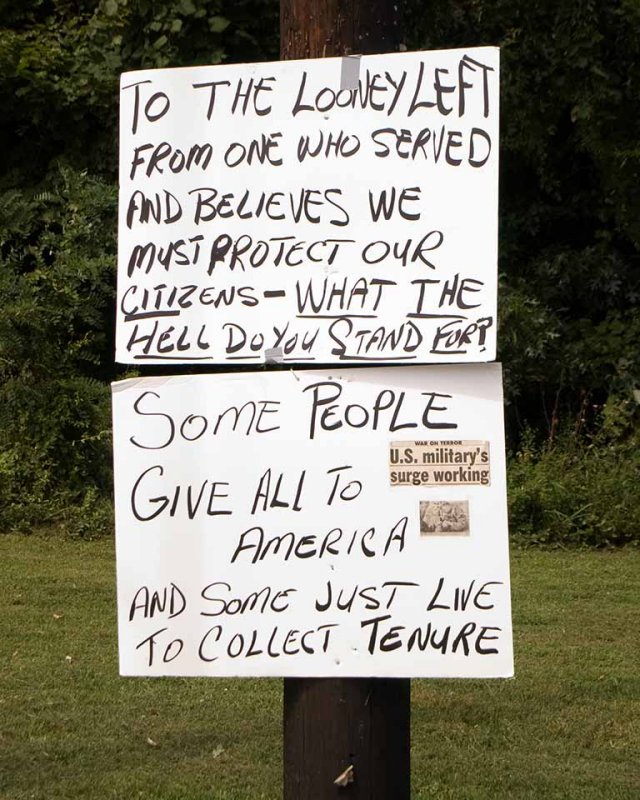 TO THE LOONEY LEFT
FROM ONE WHO SERVED
AND BELIEVES WE
MUST PROTECT OUR
CITIZENS - WHAT THE
HELL DO YOU STAND FOR?
SOME PEOPLE
WAR ON TERROR
U.S. military's
surge working
GIVE ALL TO
AMERICA
AND SOME JUST LIVE
TO COLLECT TENURE